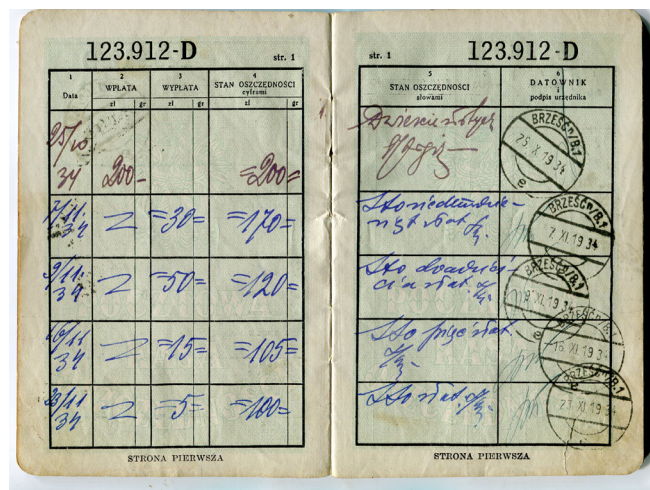 123.912-D
str. 1
1 2 3 4
Data WPŁATA WYPŁATA STAN OSZCZĘDNOŚCI
cyframi
zł gr zł gr zł gr
25/10
34 200= =200=
7/11.
34 =30= =170=
9/11.
34 =50= =120=
16/11
34 =15= =105=
23/11
34 =5= =100=
STRONA PIERWSZA
str. 1
123.912-D
5 6
STAN OSZCZĘDNOŚCI
słowami
DATOWNIK
i
podpis urzędnika
Dwieście złotych
BRZEŚĆn/B.1
25.X.1934
e
Sto siedemdzie-
siąt złot.
BRZEŚĆn/B.1
7.XI.1934
Sto dwadzieś-
cia złot.
BRZEŚĆn/B.1
9.XI.1934
e
Sto pięć złot.
BRZEŚĆn/B.1
16.XI.1934
e
Sto złot.
BRZEŚĆn/B.1
23.XI.1934
STRONA PIERWSZA